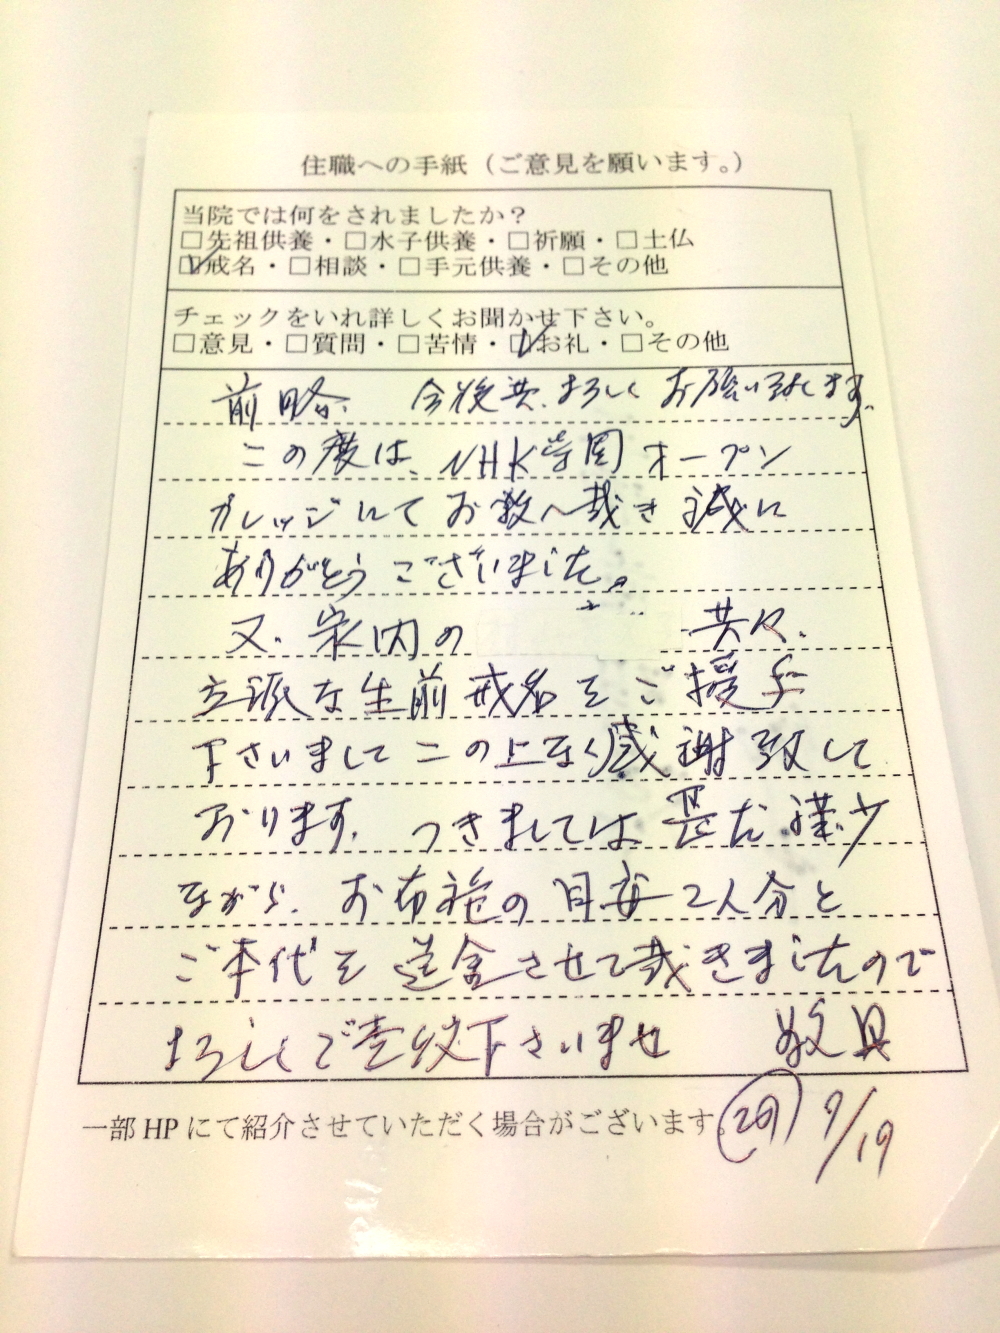 住職への手紙（ご意見を願います。）
当院では何をされましたか？
□先祖供養・□水子供養・□祈願・□土仏
☑戒名・□相談・□手元供養・□その他
チェックをいれ詳しくお聞かせ下さい。
□意見・□質問・□苦情・☑お礼・□その他
前略 今後共、よろしくお願い致します。
この度は、NHK学園オープン
カレッジにてお教へ戴き誠に
ありがとうございました。
又、家内の 共々、
立派な生前戒名をご授手
下さいましてこの上なく感謝致して
おります。つきましては 甚だ 薄少
ながら、お布施の目安2人分と
ご本代を送金させて戴きましたので
よろしくご査収下さいませ 敬具
一部HPにて紹介させていただく場合がございます。